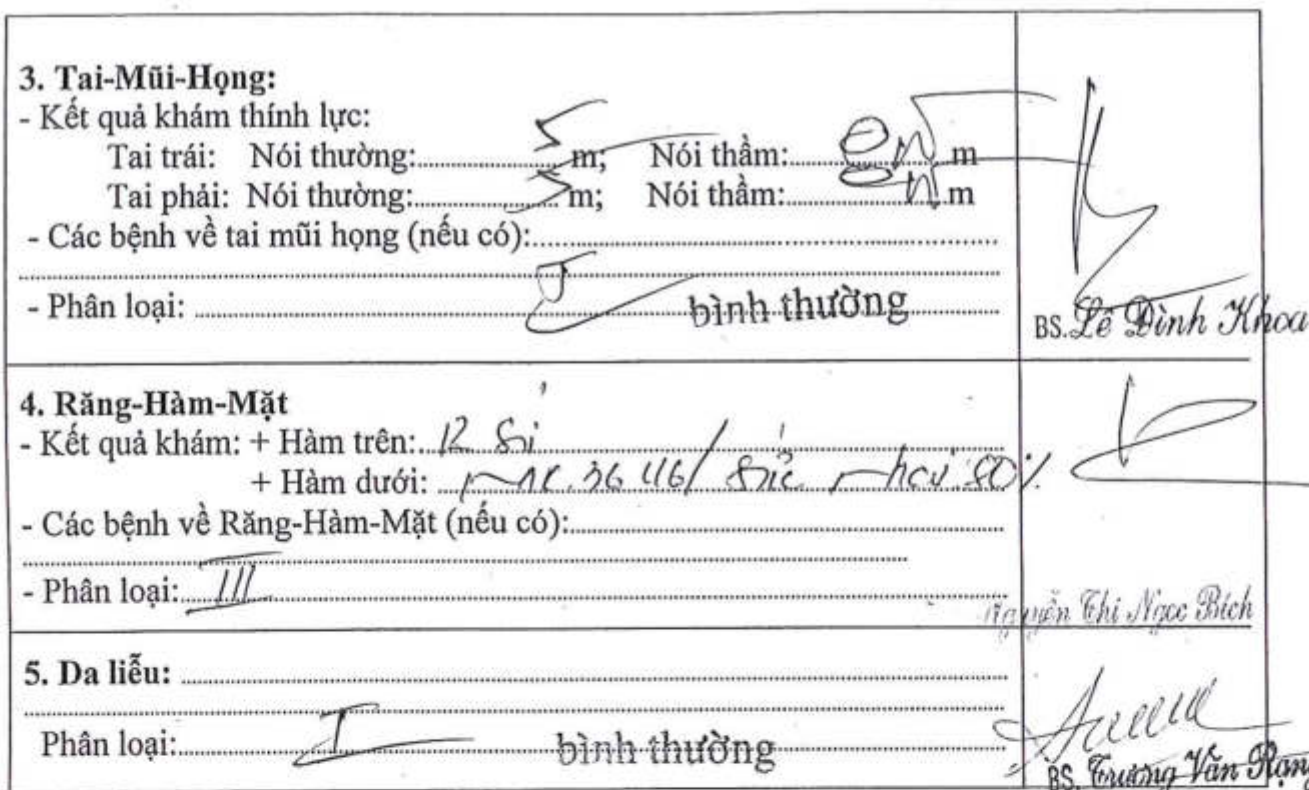 3. Tai-Mũi-Họng:
- Kết quả khám thính lực:
Tai trái: Nói thường: 5 m; Nói thầm: m
Tai phải: Nói thường: 5 m; Nói thầm: m
- Các bệnh về tai mũi họng (nếu có):
- Phân loại: bình thường
BS. Lê Đình Khoa
4. Răng-Hàm-Mặt
- Kết quả khám: + Hàm trên:
+ Hàm dưới: 36 46/ sức nhai 80%
- Các bệnh về Răng-Hàm-Mặt (nếu có):
- Phân loại: III
Nguyễn Thi Ngọc Bích
5. Da liễu:
Phân loại: I bình thường
BS. Trương Văn Rạng